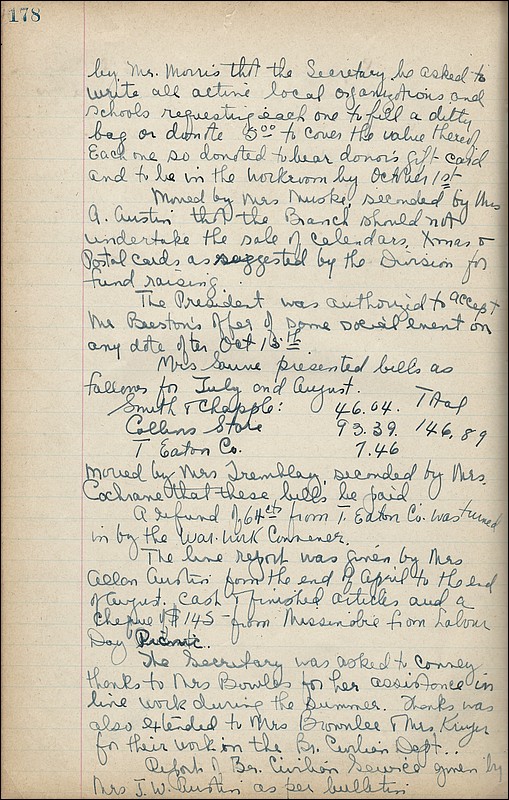 178
by Mr. Morris that the Secretary be asked to
write all active local organizations and
schools requesting each one to fill a ditty
bag or donate 3.00 to cover the value thereof
Each one so donated to bear donor's gift card
and to be in the workroom by October 1st
Moved by Mrs Nuske, seconded by Mrs
A. Austin that the Branch should not
undertake the sale of calendars, Xmas &
Postal cards as suggested by the Division for
fund raising.
The President was authorized to accept
Mr Beeston's offer of some social event on
any date after Oct 15th
Mrs presented bills as
follows for July and August.
Smith & Chapple: 46.04. Total
Collins Store 93.39. 146.89
T Eaton Co. 7.46
moved by Mrs Tremblay, seconded by Mrs.
Cochrane that these bills be paid
A refund of 64cts from T. Eaton Co. was turned
in by the War Work Convener.
The line report was given by Mrs
Allan Austin from the end of April to the end
of August. Cash & finished articles and a
cheque of $145 - from Missinabie from Labour
Day Picnic.
The Secretary was asked to convey
thanks to Mrs Bowles for her assistance in
line work during the summer. Thanks was
also extended to Mrs Brownlee & Mrs. Kruger
for their work on the Br. Civilian Dept..
Report of Br. Civilian Service given by
Mrs J. W. Austin as per bulletin